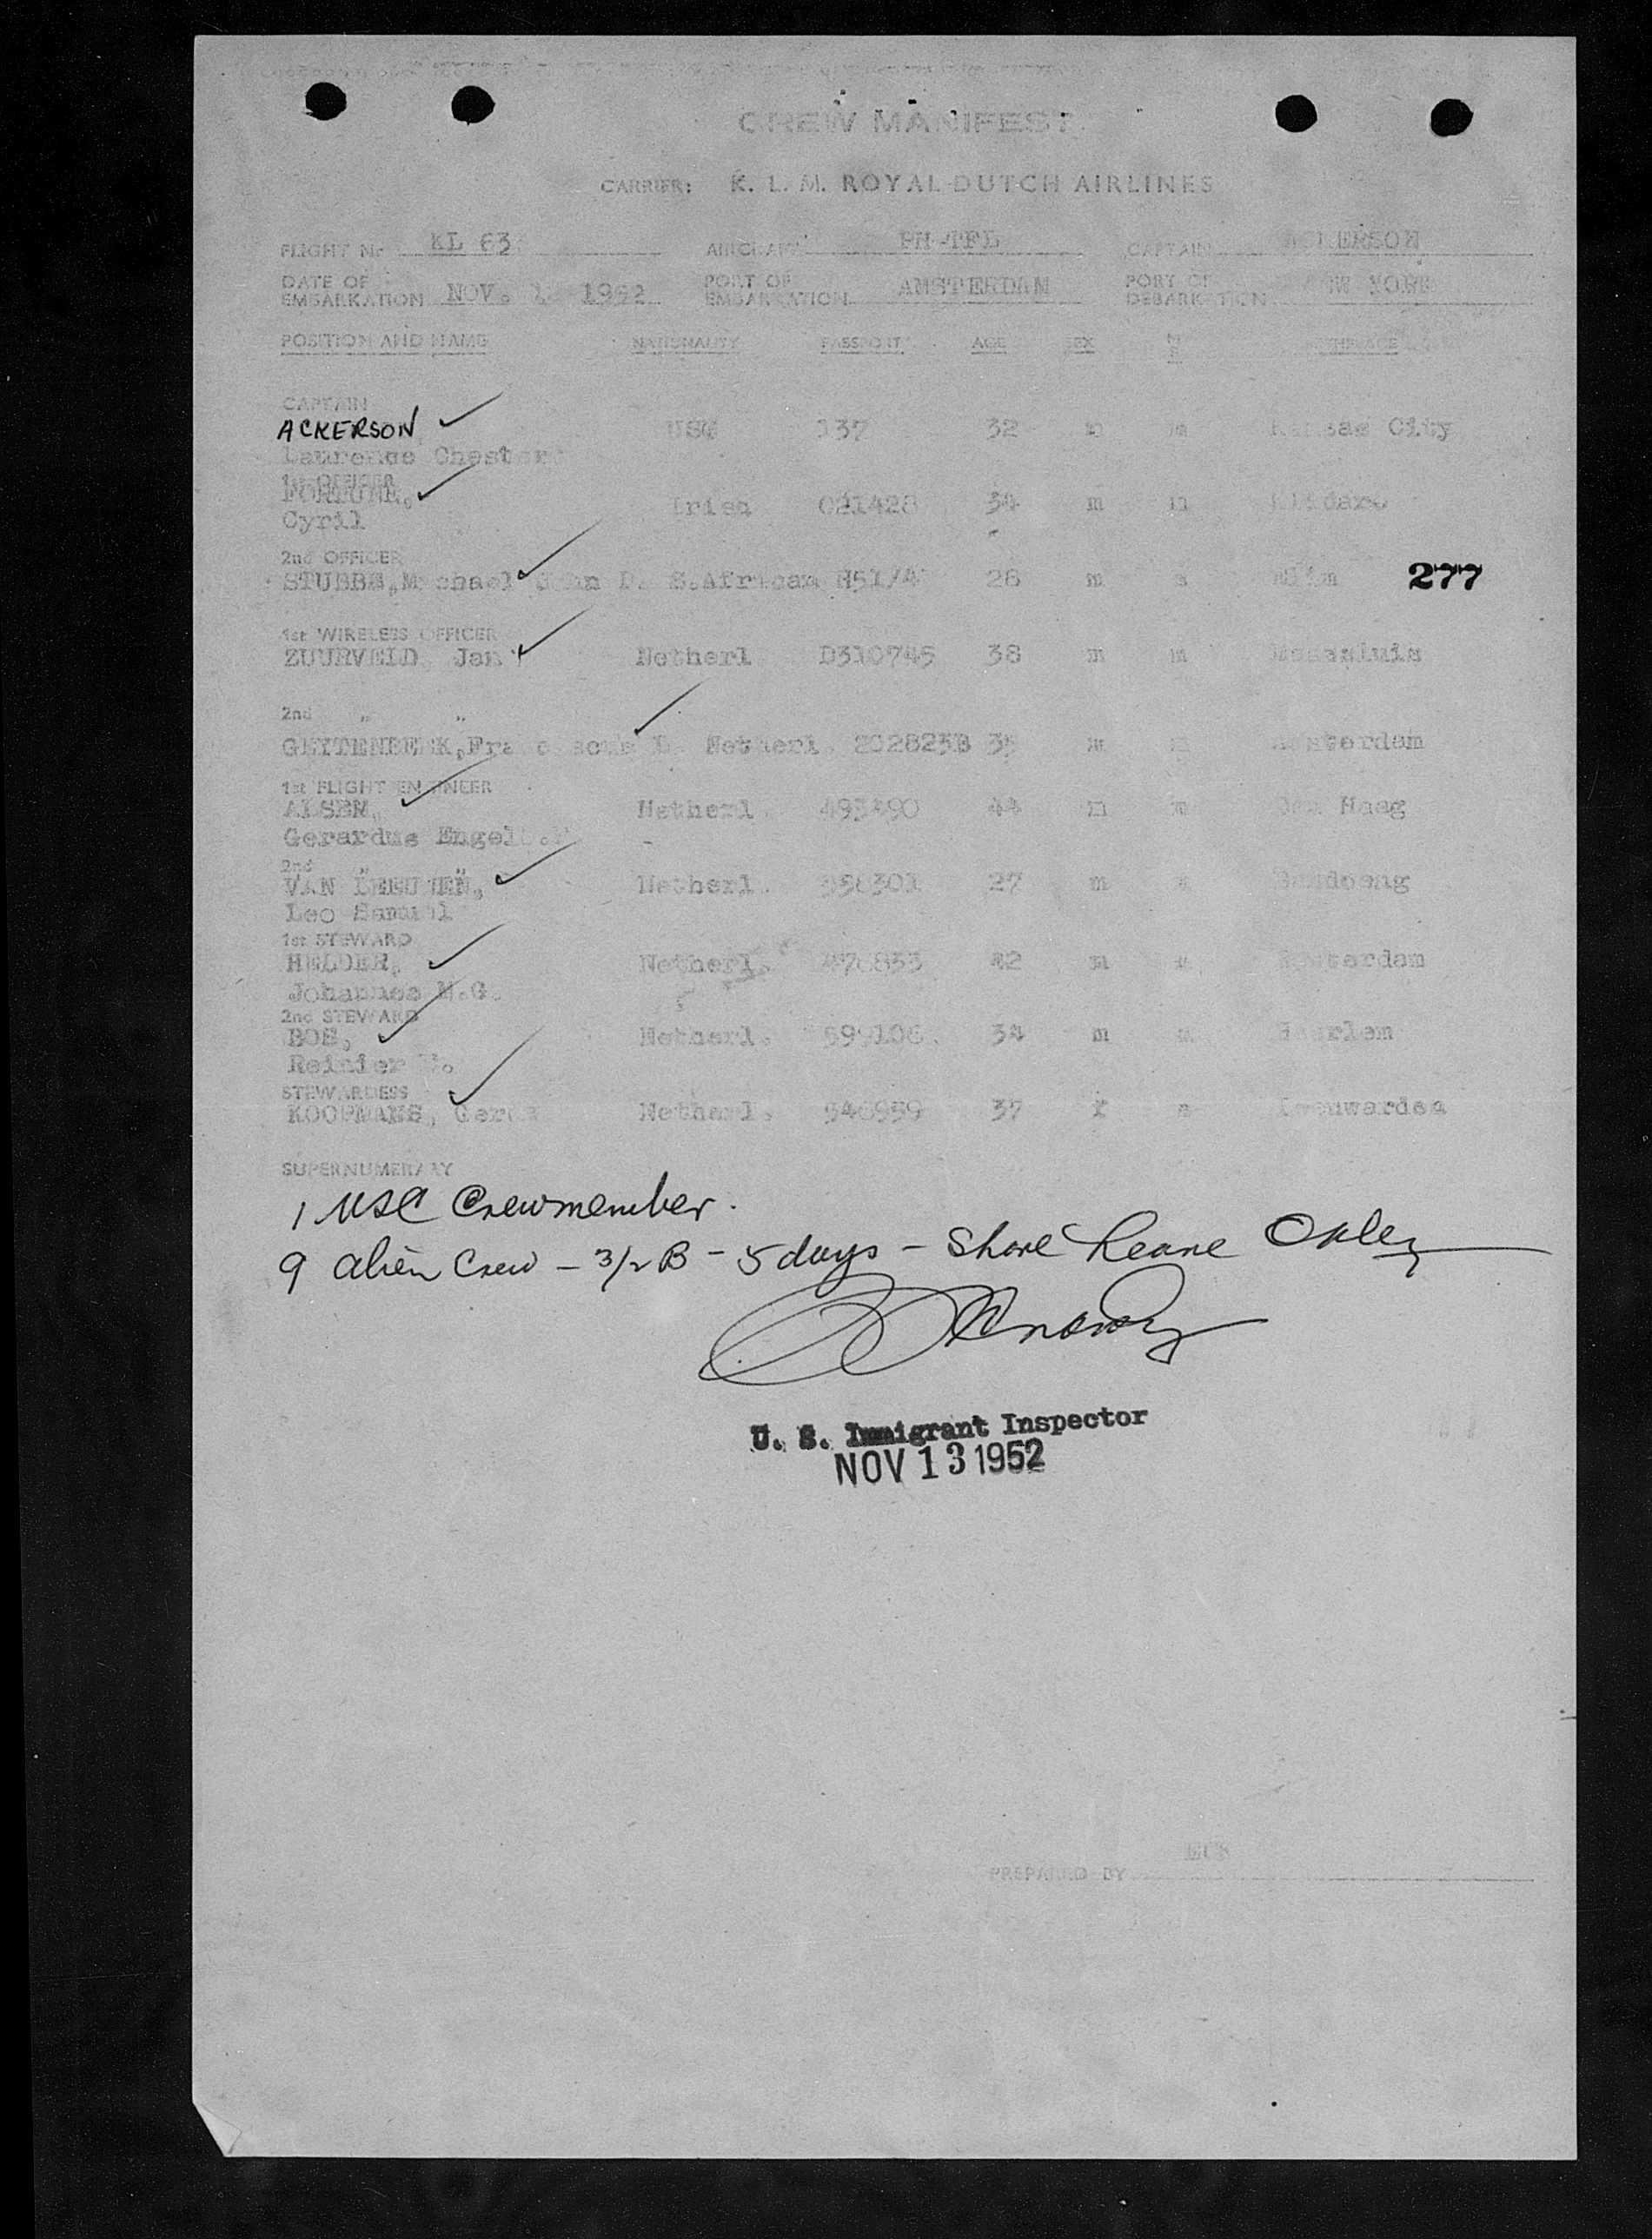 CREW MANIFEST
CARRIER: K. L. M. ROYAL DUTCH AIRLINES
FLIGHT Nr KL 63 AIRCRAFT PH-TFL CAPTAIN ACKERSON
DATE OF EMBARKATION NOV. 1952 PORT OF EMBARKATION AMSTERDAM PORT OF DEBARKATION NEW YORK
POSITION AND NAME NATIONALITY PASSPORT AGE SEX BIRTHPLACE
CAPTAIN
ACKERSON 137 32 m m Kansas City
Laurence Chester
1st OFFICER
FORTUNE, Irish 021428 34 m m
Cyril
2nd OFFICER
STUBBS, Michael John D. S.African 28 m s 277
1st WIRELESS OFFICER
ZUURVELD, Jan Netherl D310745 38 m m Maassluis
2nd " "
GEITENBEEK, Netherl. 202823B 35 m m Amsterdam
1st FLIGHT ENGINEER
ALSEM, Netherl. 493490 44 m m Den Haag
Gerardus Engel
2nd " "
VAN LEEUWEN, Netherl. 27 m Bandoeng
Leo Samuel
1st STEWARD
HELDER, Netherl. 42 m
Johannes M.G.
2nd STEWARD
BOS, Netherl. 34 m m Haarlem
Reinier
STEWARDESS
KOOPMANS, Gerda Netherl. 546959 37 f s Leeuwarden
SUPERNUMERARY
1 USC Crewmember.
9 alien Crew - 3/2 B - 5 days - Shore Leave Only
U. S. Immigrant Inspector
NOV 13 1952
PREPARED BY